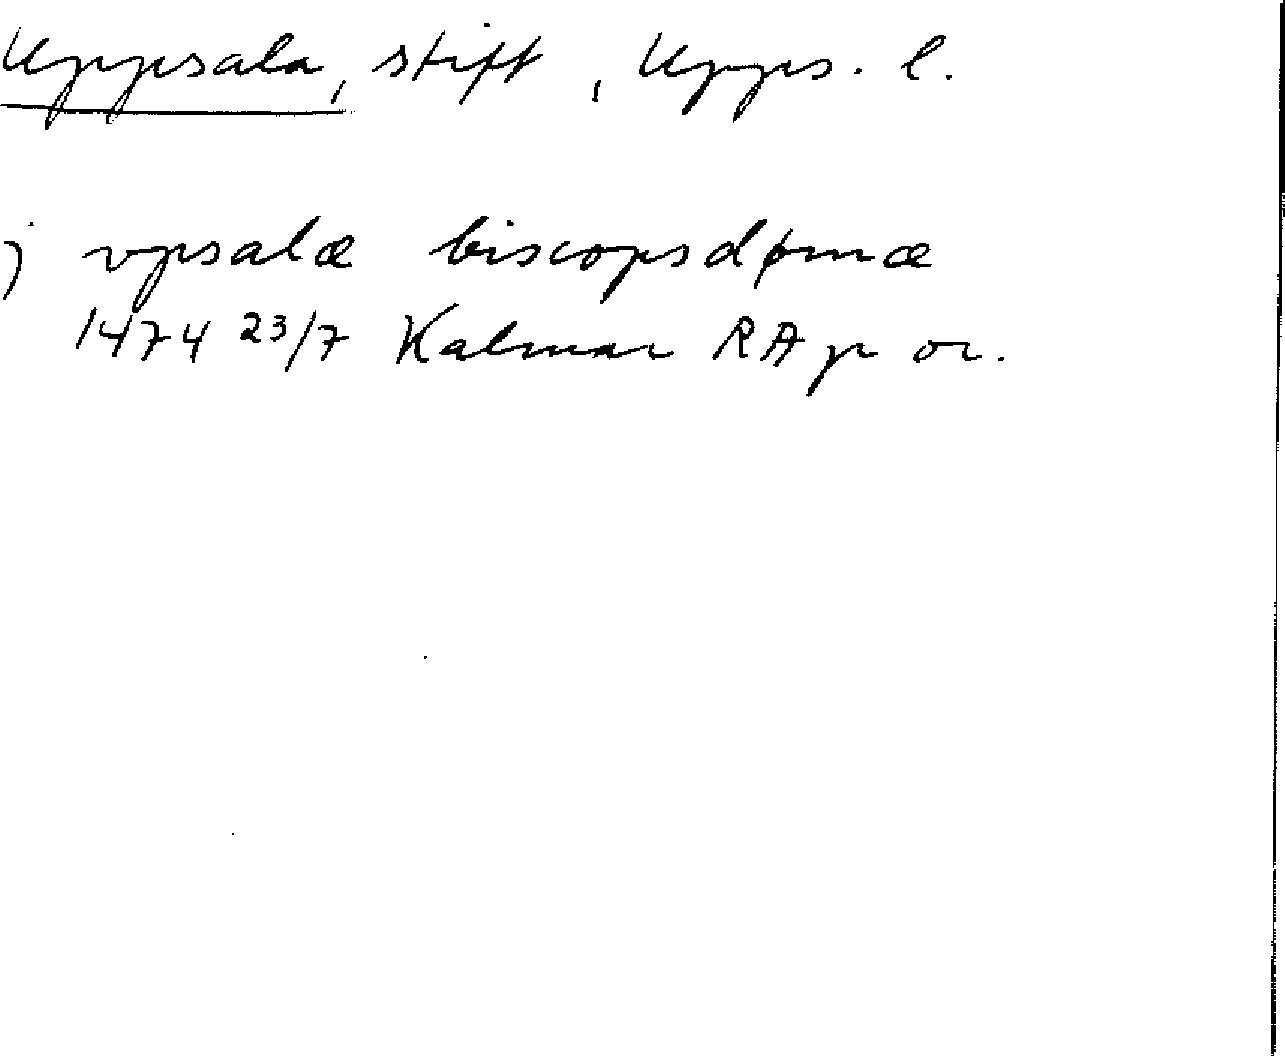 Uppsala, stift, Upps. l.
j vpsalæ biscopsdømæ
1474 23/7 Kalmar RA p or.